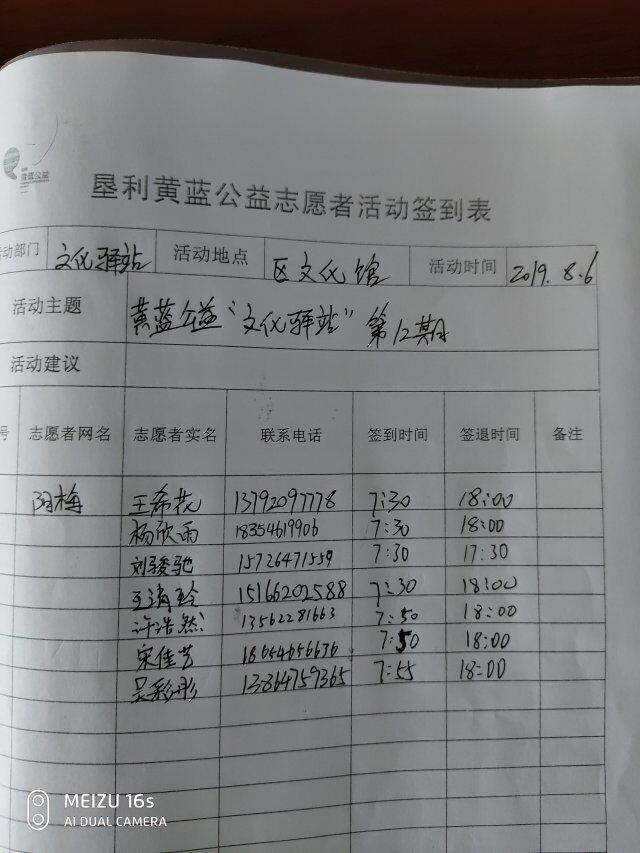 黄蓝公益
垦利黄蓝公益志愿者活动签到表
活动部门 文化驿站 活动地点 区文化馆 活动时间 2019.8.6
活动主题 黄蓝公益“文化驿站”第12期
活动建议
号 志愿者网名 志愿者实名 联系电话 签到时间 签退时间 备注
阳梅 王希花 13792097778 7:30 18:00
杨欣雨 18354619906 7:30 18:00
刘骏驰 15726471559 7:30 17:30
15166202588 7:30 18:00
许浩然 13562281663 7:50 18:00
宋佳艺 7:50 18:00
吴彩彤 13864759365 7:55 18:00
MEIZU 16s
AI DUAL CAMERA